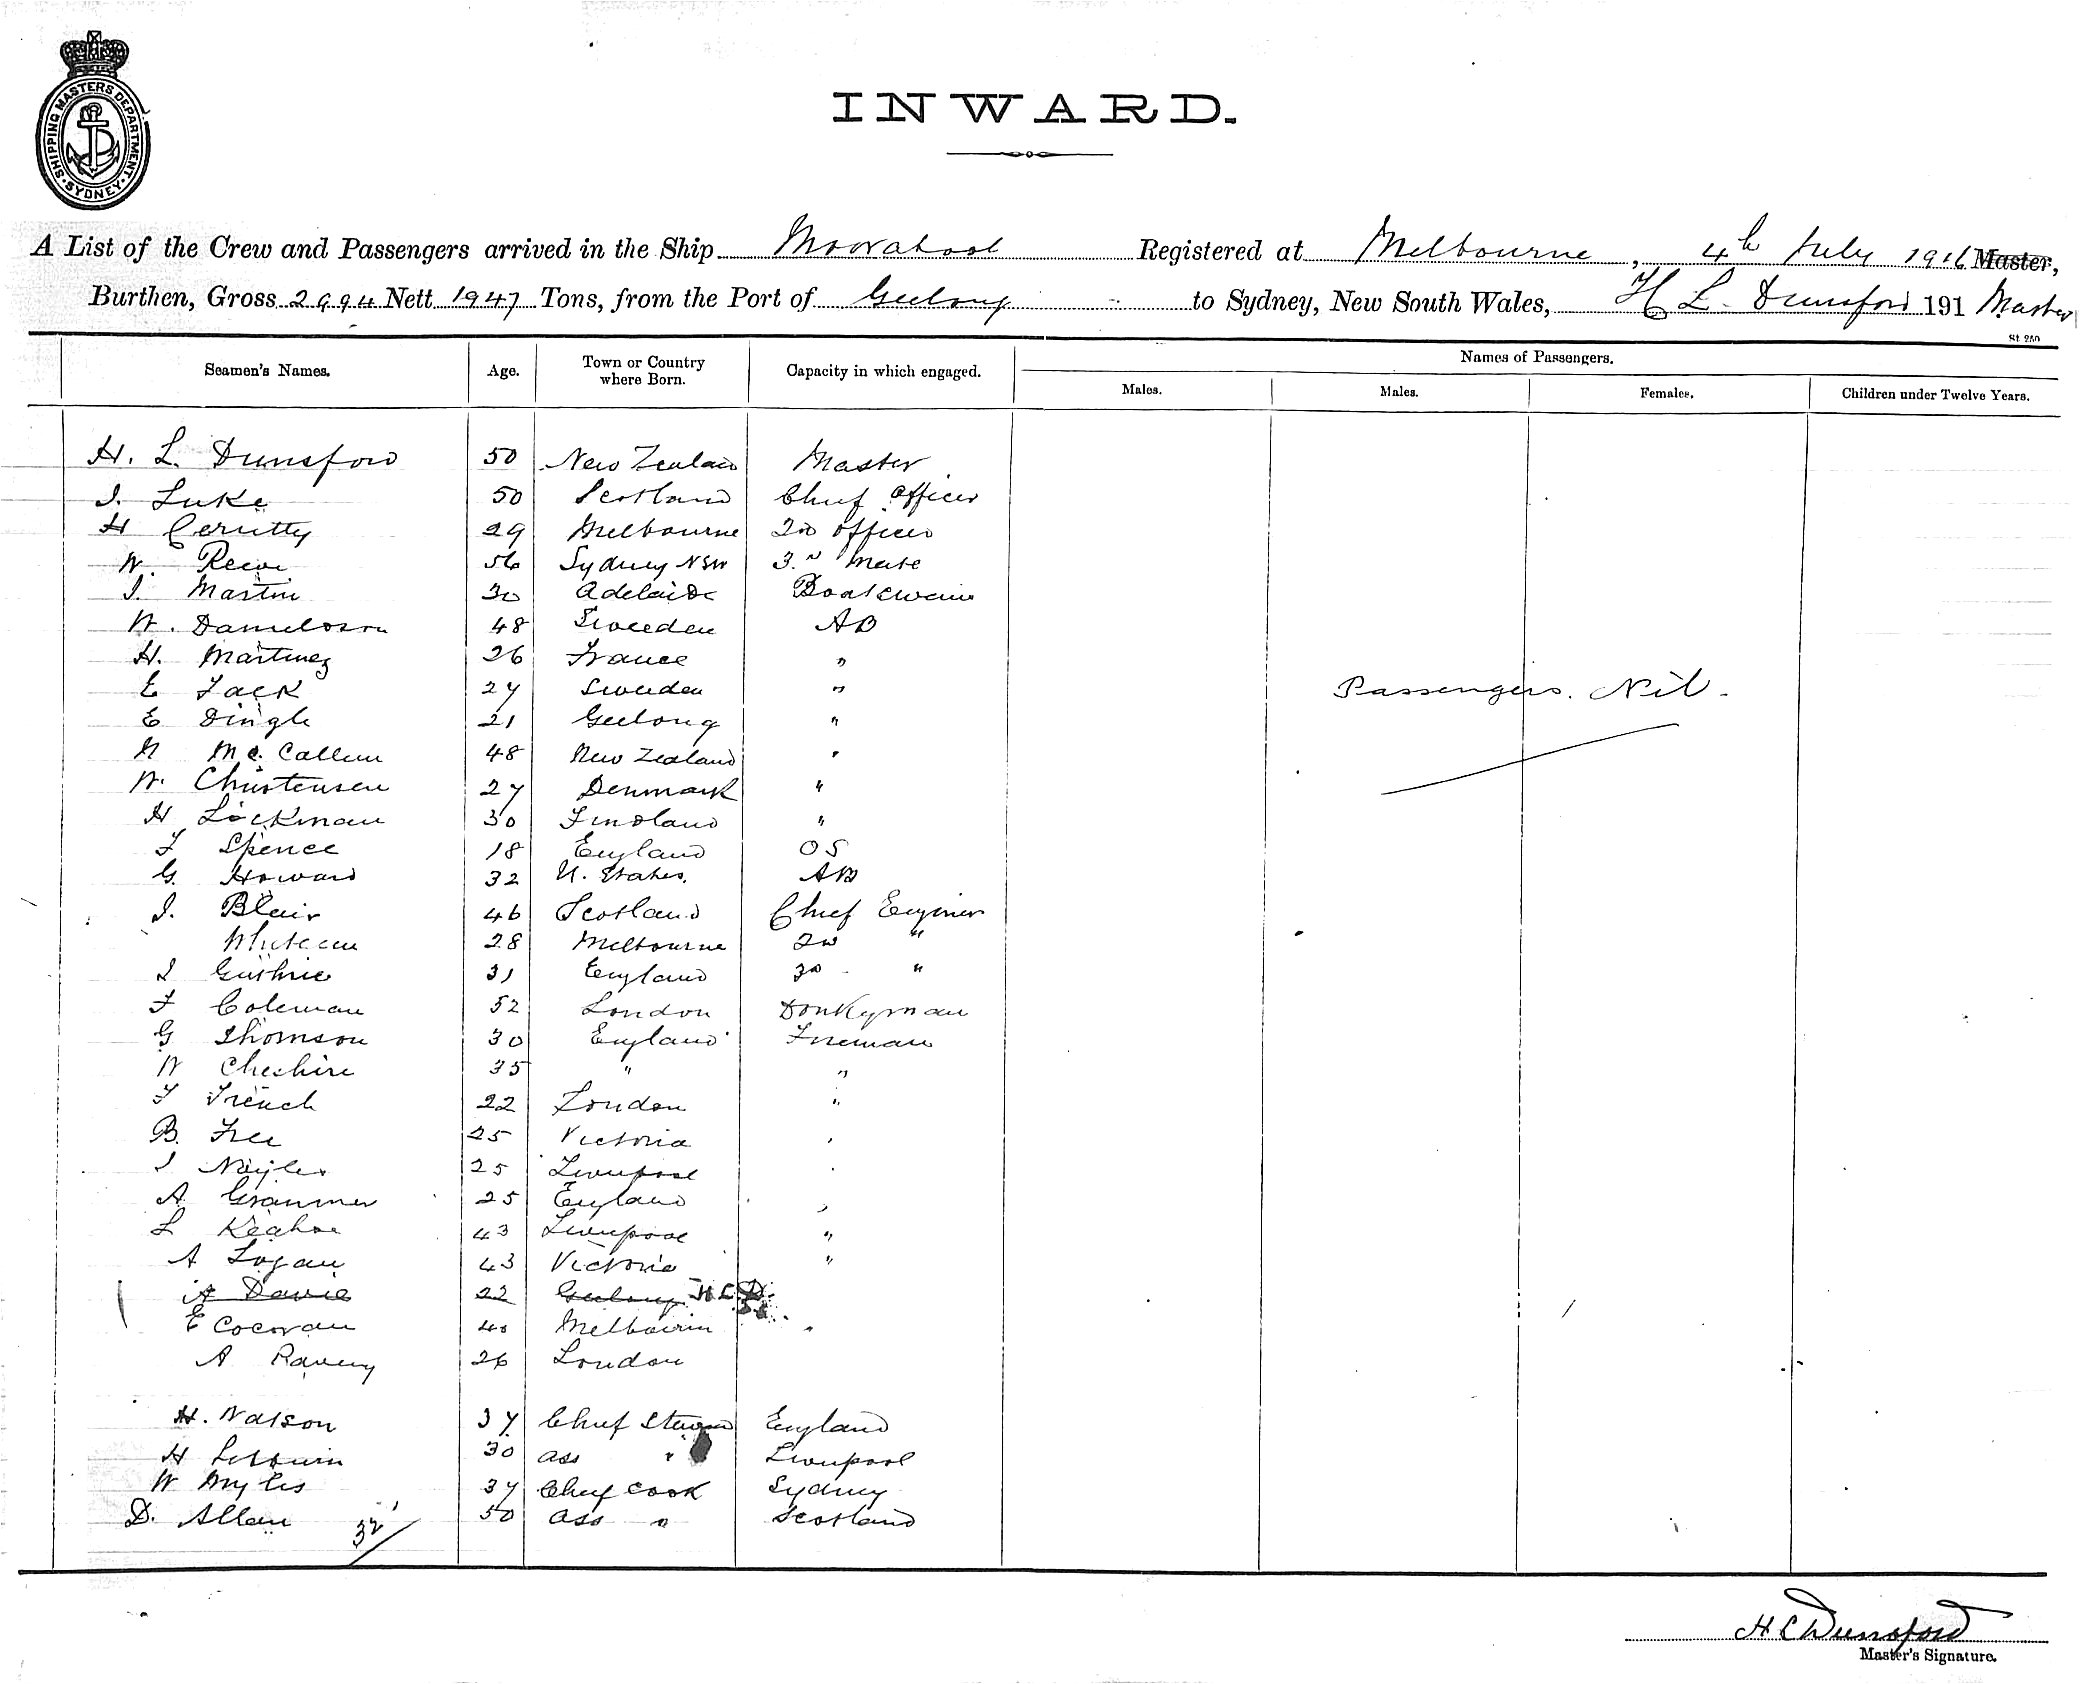 SHIPPING MASTERS DEPARTMENT. SYDNEY
INWARD.
A List of the Crew and Passengers arrived in the Ship Moorabool Registered at Melbourne, 4th July 1916 Master,
Burthen, Gross 2994 Nett 1947 Tons, from the Port of Geelong to Sydney, New South Wales, H L Dunsford 191 Master
St 250
Seamen's Names. Age. Town or Country where Born. Capacity in which engaged. Names of Passengers.
Males. Males. Females. Children under Twelve Years.
H. L. Dunsford 50 New Zealand Master
J. Luke 50 Scotland Chief Officer
H Cerutty 29 Melbourne 2nd Officer
W. 56 Sydney NSW 3" Mate
J. Martin 30 Adelaide Boatswain
W. Danielsson 48 Sweeden AB
H. Martinez 26 France "
E Jack 27 Sweeden "
E Dingle 21 Geelong "
N Mc. Callum 48 New Zealand "
W. Christensen 27 Denmark "
H Lockman 30 Findland "
F Spence 18 England OS
G. Howard 32 U. States. AB
J. Blair 46 Scotland Chief Enginer
28 Melbourne 2nd "
J Guthrie 31 England 3rd "
F Coleman 52 London Donkyman
G Thomson 30 England Fireman
W Cheshire 35 " "
F French 22 London "
B. Free 25 Victoria "
J Nayler 25 Liverpool "
A Granmer 25 England "
L Keahoe 43 Liverpool "
A Logan 43 Victoria "
A Davie 22 Geelong H L D
E Cocoran 40 "
A 26 London
Passengers. Nil.
H. Watson 37 Chief Steward England
H 30 Ass " Liverpool
W Myles 37 Chief Cook Sydney
D. Allan 50 Ass " Scotland
32
H L Dunsford
Master's Signature.